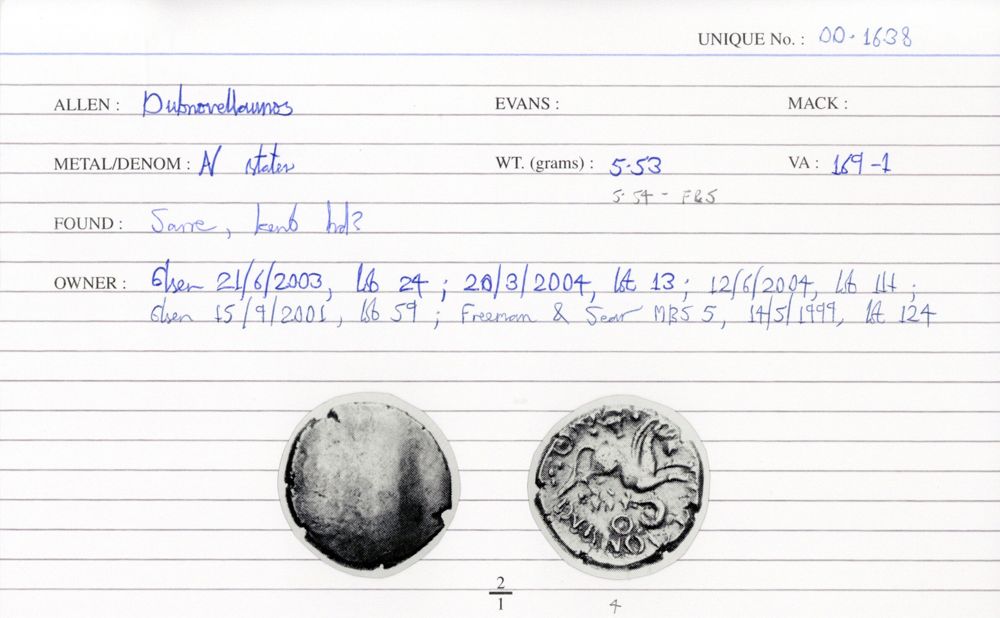 UNIQUE No. : 00·1638
ALLEN : Dubnovellaunos EVANS : MACK :
METAL/DENOM : N stater WT. (grams) : 5·53 VA : 169-1
5·54 - F&S
FOUND : Sarre, Kent hd?
OWNER : Elsen 21/6/2003, lot 24 ; 20/3/2004, lot 13 ; 12/6/2004, lot 114 ;
Elsen 15/9/2001, lot 59 ; Freeman & Sear MBS 5, 14/5/1999, lot 124
DVBNO
2
1
4